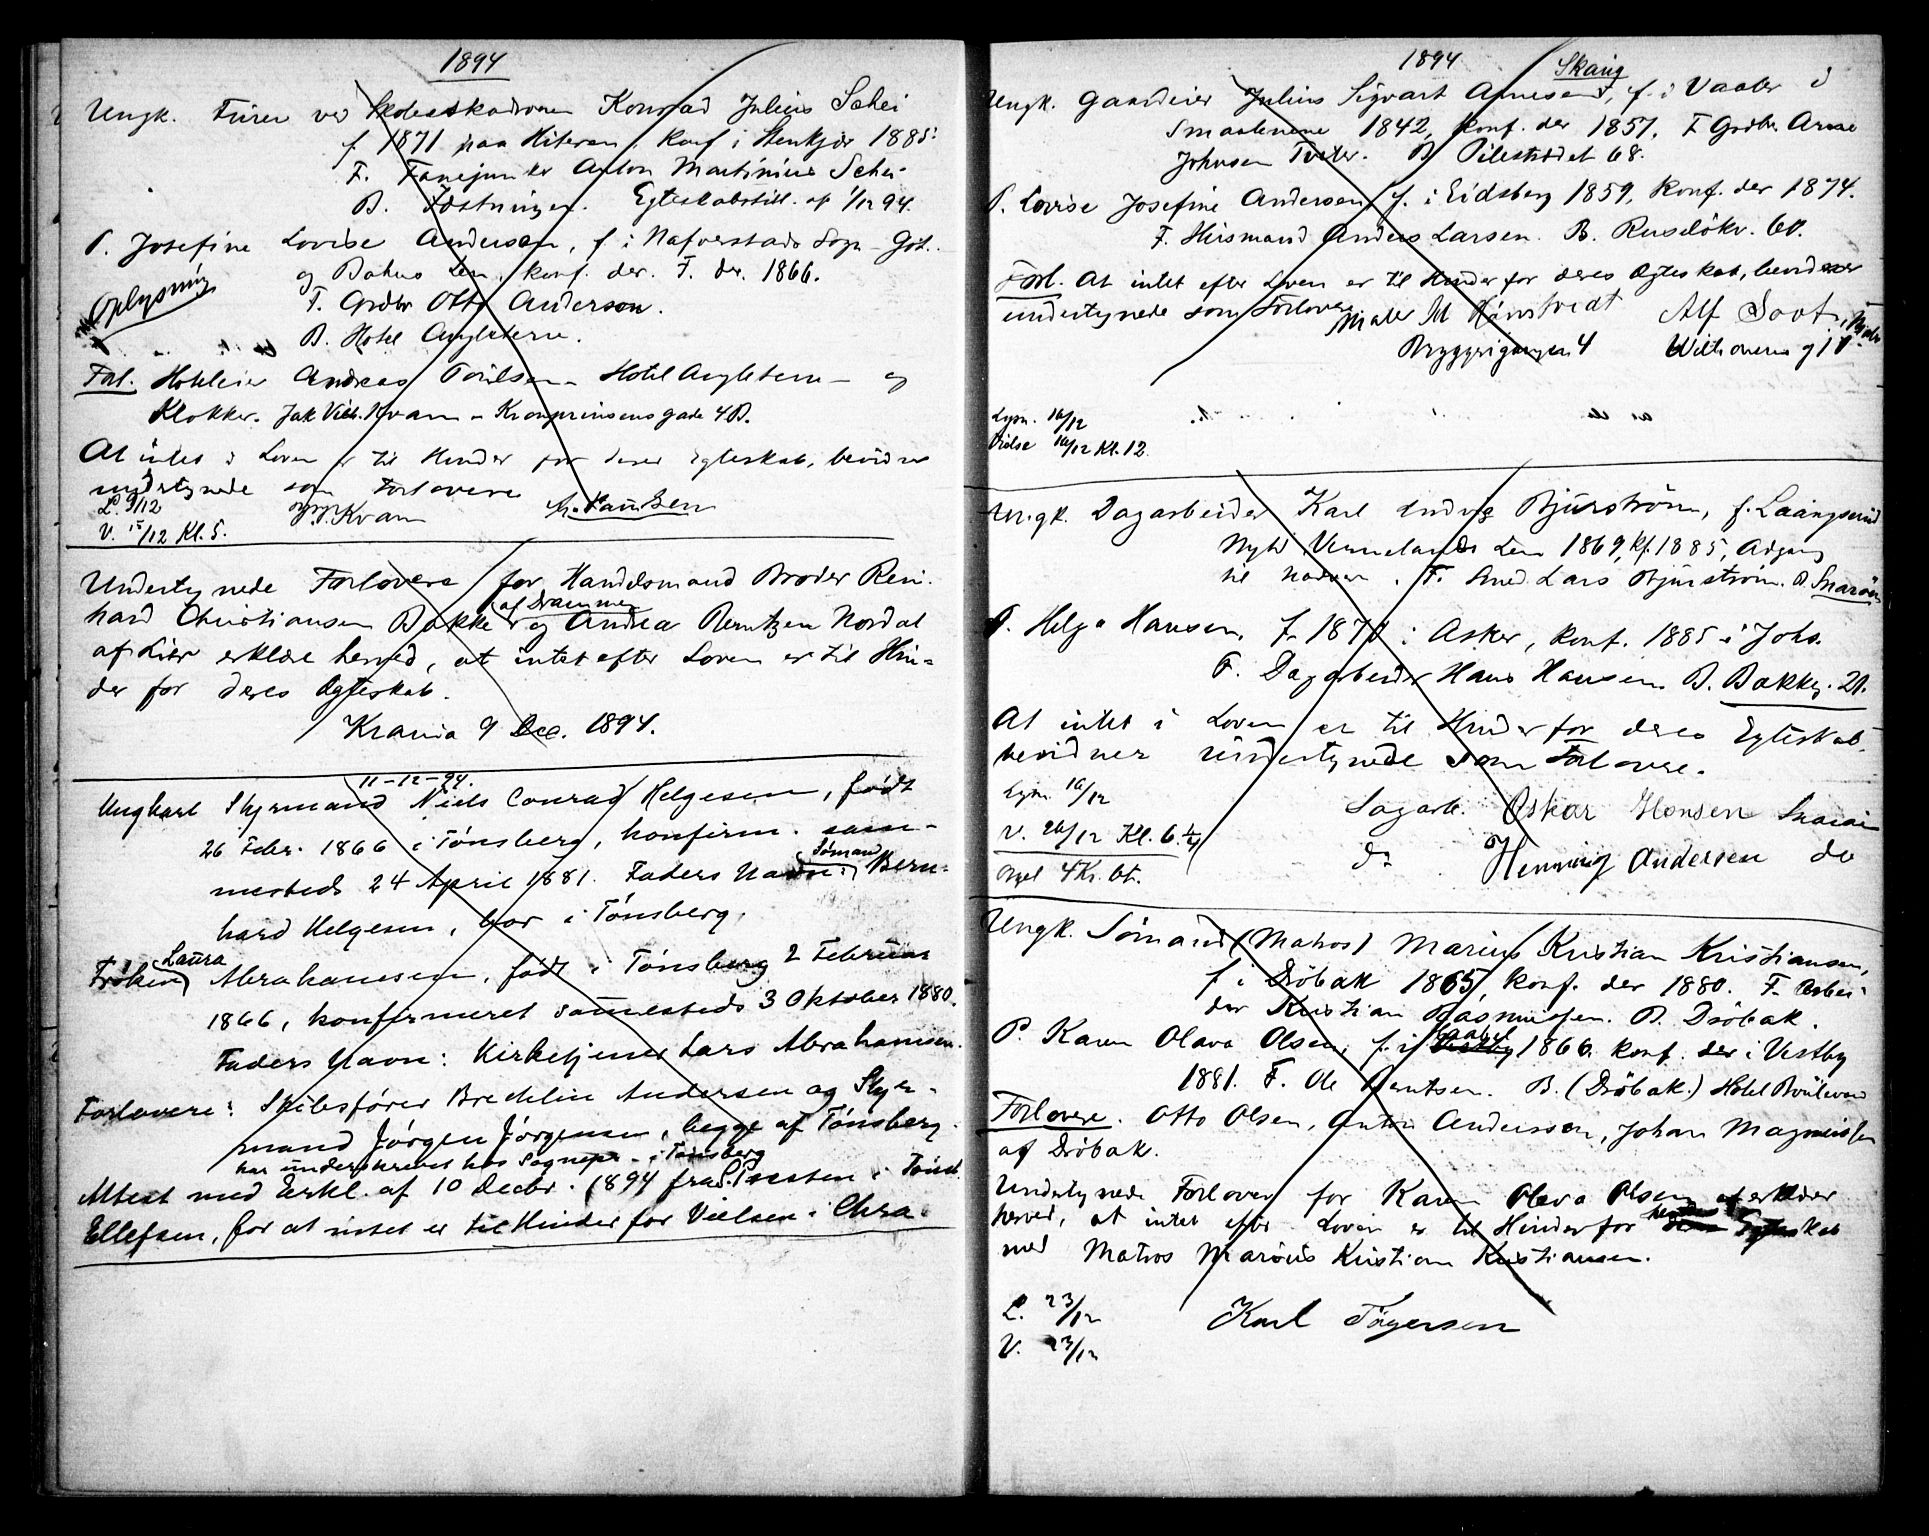 1894
Ungk. Furer ved Skoleeskadronen Konrad Julius Schei
f. 1871 paa Hiteren, Konf. i Stenkjer 1885.
F. Fanejunker Anton Martinius Schei
B. Fæstningen. Egteskabstill. af 1/12 94.
P. Josefine Lovise Andersen, f. i Nafverstads Sogn Got.
og Bahus Len, konf. der. F. dr. 1866.
Oplysning
F. Grdbr Otto Anderson.
B. Hotel Angleterre.
Forl. Hoteleier Andreas Poulsen - Hotel Angleterre - og
Klokker. Jak Vilh. Kvam - Kronprinsensgade 4 B.
At intet i Loven er til Hinder for deres Egteskab, bevidner
undertegnede som Forlovere
L 9/12 Kvam A. Paulsen
V. 15/12 Kl. 5.
Undertegnede Forlovere for Handelsmand Broder Rein-
hard Christiansen Bakke af Drammen og Andrea Berntzen Nordal
af Lier erklære herved, at intet efter Loven er til Hin-
der for deres Egteskab.
Krania 9 Dec. 1894.
11-12-94.
Ungkarl Styrmand Niels Conrad Helgesen, født
26 Febr. 1866 i Tønsberg, konfirm. sam-
mesteds 24 April 1881. Faders Navn: Sømand Bern-
hard Helgesen, bor i Tønsberg.
Frøken Laura Abrahamsen, født i Tønsberg 2 Februar
1866, konfirmeret sammesteds 3 Oktober 1880.
Faders Navn: Kirketjener Lars Abrahamsen.
Forlovere: Skibsfører Andersen og Styr-
mand Jørgen Jørgensen, begge af Tønsberg.
har underskrevet hos Sognepr. i Tønsberg
Attest med Erkl. af 10 Decbr. 1894 fra S. Presten i Tønsb.
Ellefsen, for at intet er til Hinder for Vielsen i Chra.
1894 Skaug
Ungk. Gaardeier Julius Sigvart Arnesen, f. i Vaaler i
Smaalenene 1842, Konf. der 1857. F Grdbr. Arne
Johnsen Tveter. B. Pilestrædet 68.
P. Lovise Josefine Andersen, f. i Eidsberg 1859, Konf. der 1874.
F. Husmand Anders Larsen. B. Ruseløkv. 60.
Forl. At intet efter Loven er til Hinder for deres Egteskab, bevidner
undertegnede som Forlovere
Maler M Alf Soot
Bryggerigangen 4
Lysn. 16/12
Vielse 16/12 Kl. 12.
Ungk. Dagarbeider Karl Ludvig Bjurström, f. Laangserud
Nyed Vermelands Len 1869, kf. 1885, Adgang
til Nadver. F. Smed Lars Bjurström. B. Snarøen
P. Helga Hansen, f. 1870 i Asker, Konf. 1885 i Johs.
F. Dagarbeider Hans Hansen. B. Bakkeg. 21.
At intet i Loven er til Hinder for deres Egteskab,
bevidner undertegnede som Forlovere.
Lysn. 16/12
Dagarb. Oskar Hansen
V. 26/12 Kl. 6 1/4
do Henning Andersen do
Orgel 4 Kr. bt.
Ungk. Sømand (Matros) Marius Kristian Kristiansen,
f. i Drøbak 1865, konf. der 1880. F. Arbei-
der Kristian Rasmussen. B. Drøbak.
P. Karen Olava Olsen, f. i 1866. konf. der i Vestby
1881. F. Ole Berntsen. B. (Drøbak.) Hotel Boulevard
Forlovere. Otto Olsen, Anton Anderssen, Johan Magnussen
af Drøbak.
Undertegnede Forlover for Karen Olava Olsen erklærer
herved, at intet efter Loven er til Hinder for hendes Egteskab
med Matros Marius Kristian Kristiansen.
L. 23/12
Karl Tögersen
V. 23/12